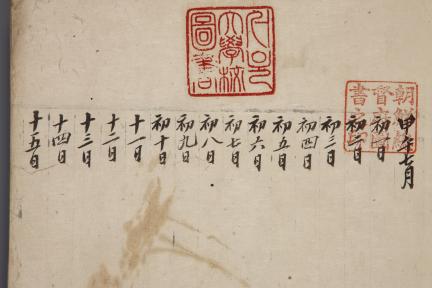 大學校
圖書
朝鮮總
督府圖
書之印
甲午七月
初一日
初二日
初三日
初四日
初五日
初六日
初七日
初八日
初九日
初十日
十一日
十二日
十三日
十四日
十五日